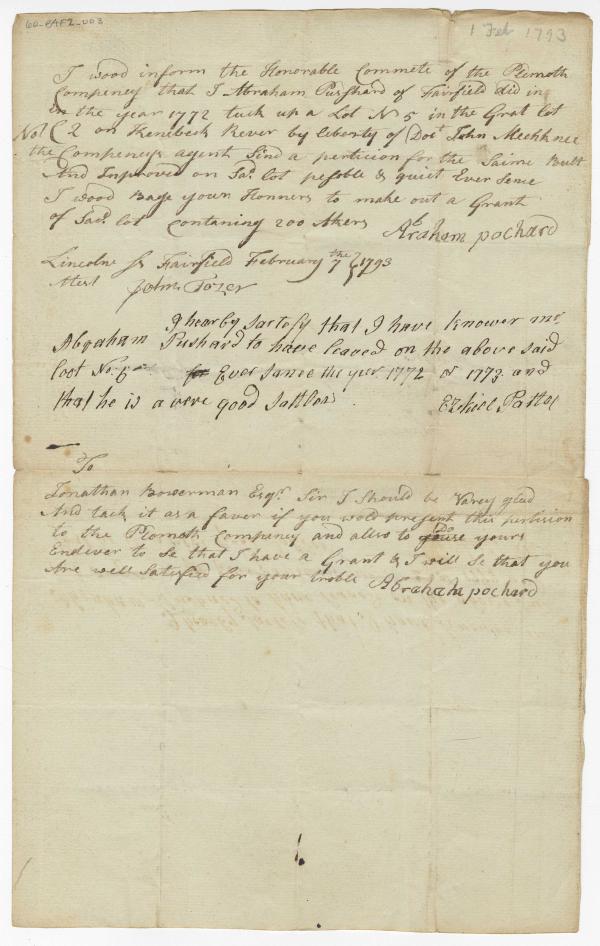 60_PAF2_003
1 Feb 1793
I wood inform the Honorable Commete of the Plemoth
Compeney that I Abraham Purshard of Fairfield did in
in the year 1772 tuck up a Lot N 5 in the Grat lot
No1 C 2 on Kenebeck River by liberty of Doct John Mechknee
the Compeneys agent Sind a pertision for the Saime Bult
And Improved on Sad lot pesable & quiet Ever Sence
I wood Bage your Honners to make out a Grant
of Sad lot Contaning 200 Akers Abraham pochard
Lincolne Ss Fairfield February the 7 } 1793
Atest John Tozer
I hearby sartefy that I have knower mr
Abraham Pushard to have leaved on the above said
loot No 5 Ever sance the year 1772 or 1773 and
that he is a vere good sattler Ezkiel Pattee
To
Jonathan Bowerman Esqr Sir I Should be Varey glad
And tack it as a faver if you wold present this pertision
to the Plomoth Compeney and allso to Do yours
Endever to Se that I have a Grant & I will Se that you
Are well Satisfied for your troble Abraham pochard